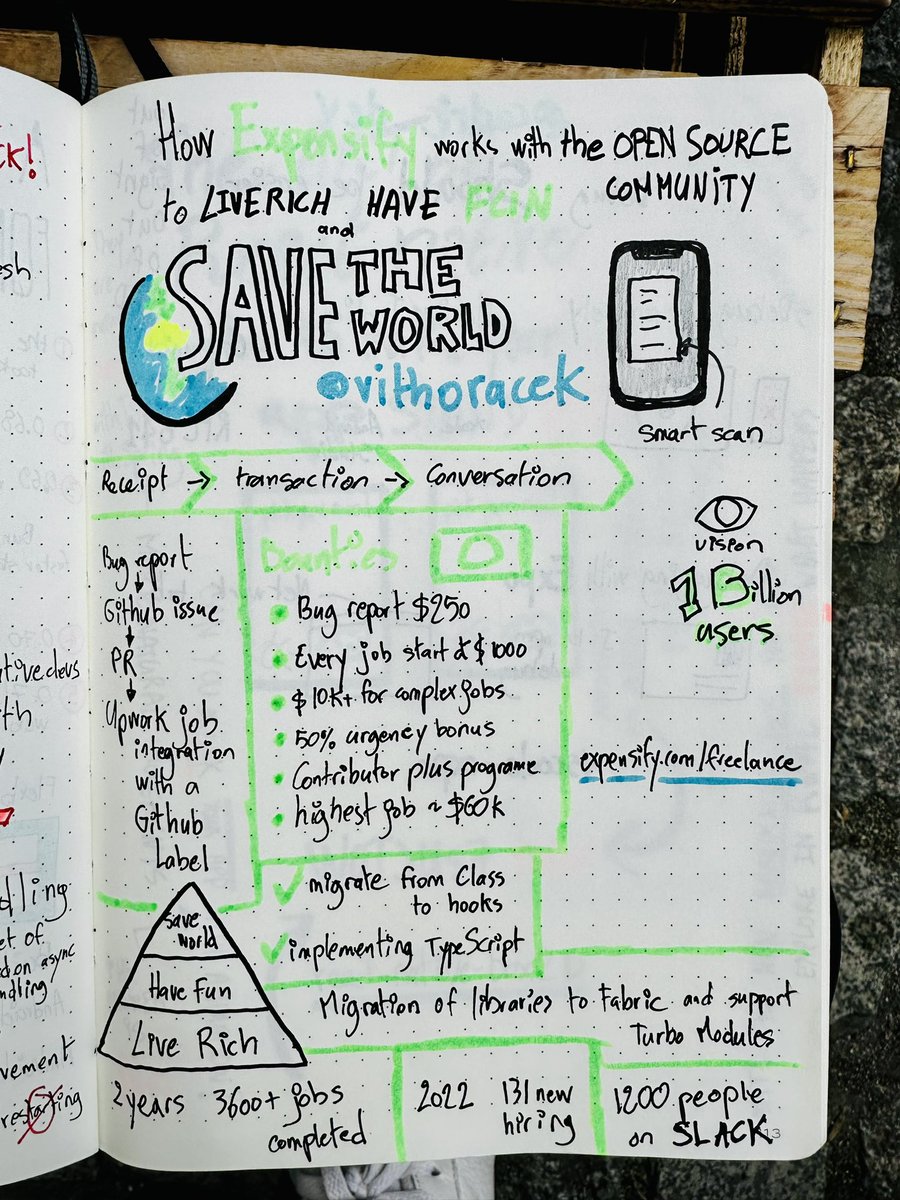 How Expensify works with the OPEN SOURCE
COMMUNITY
to LIVE RICH HAVE FUN
and
SAVE THE
WORLD
@vithoracek
smart scan
Receipt → transaction → Conversation
vision
1 Billion
users
Bug report
Github issue
PR
Upwork job
integration
with a
Github
Label
Bounties
Bug report $250
Every job start at $1000
$10K+ for complex jobs
50% urgency bonus
Contributor plus programe
highest job ~ $60K
expensify.com/freelance
migrate from Class
to hooks
implementing TypeScript
Save
world
Have Fun
Live Rich
Migration of libraries to Fabric and support
Turbo Modules
2 years 3600+ jobs
completed
2022 131 new
hiring
1200 people
on SLACK
13
esh
dling
et of
async
ndling
vement